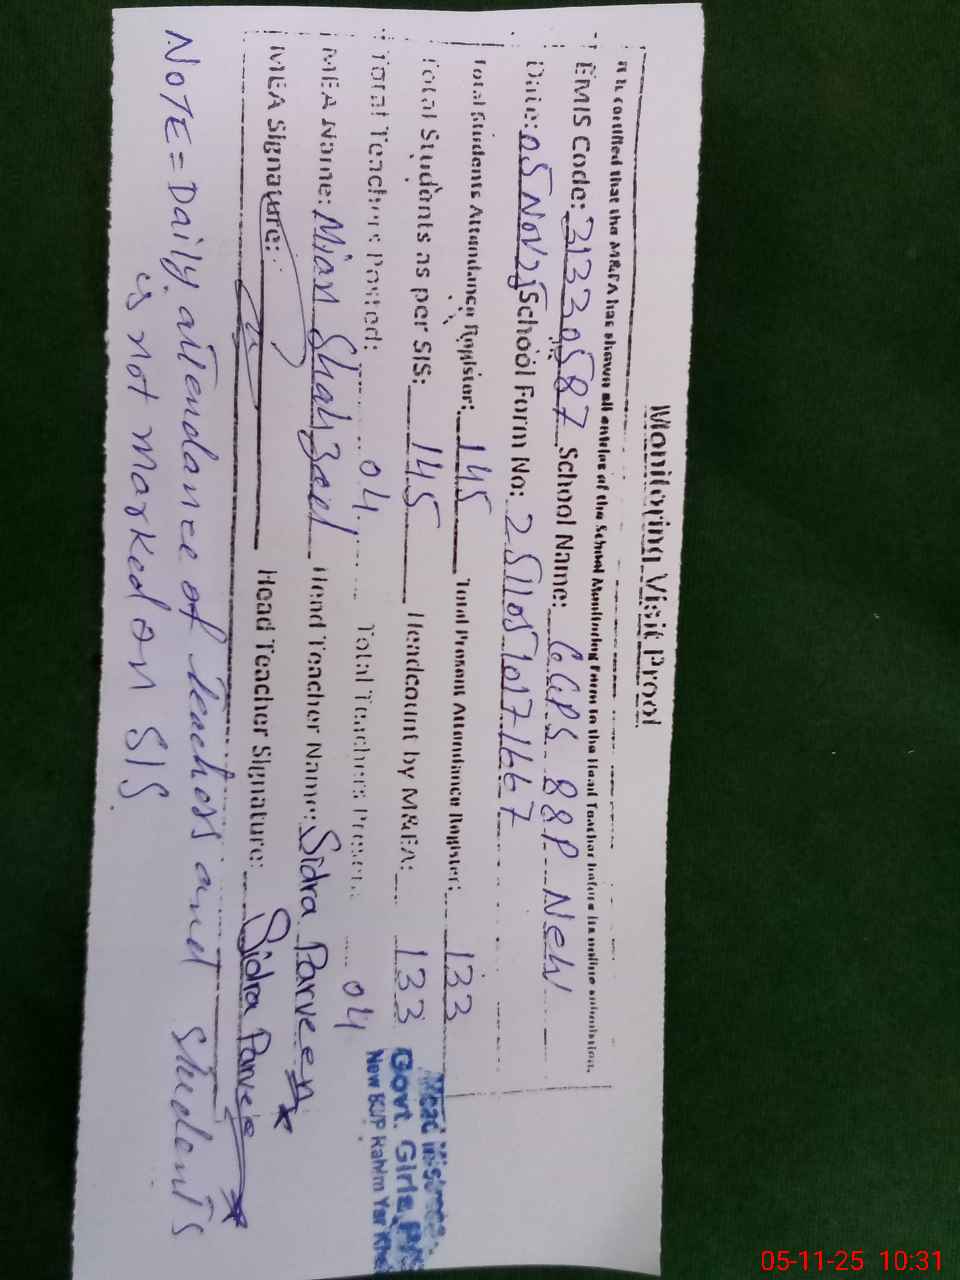 Monitoring Visit Proof
It is certified that the M&EA has shown all entries of the School Monitoring Form to the Head Teacher before its online submission.
EMIS Code: 31330587 School Name: GGPS 88P New
Date: 05 Nov 25 School Form No: 25110510171667
Total Students Attandance Register: 145 Total Present Attandance Register: 133
Total Students as per SIS: 145 Headcount by M&EA: 133
Total Teachers Posted: 04 Total Teachers Present: 04
MEA Name: Mian Shahzad Head Teacher Name: Sidra Parveen
MEA Signature: Head Teacher Signature: Sidra Parveen
NOTE = Daily attendance of teachers and students
is not marked on SIS.
Head Mistress
Govt. Girls
New 88/P Rahim Yar Khan
05-11-25 10:31